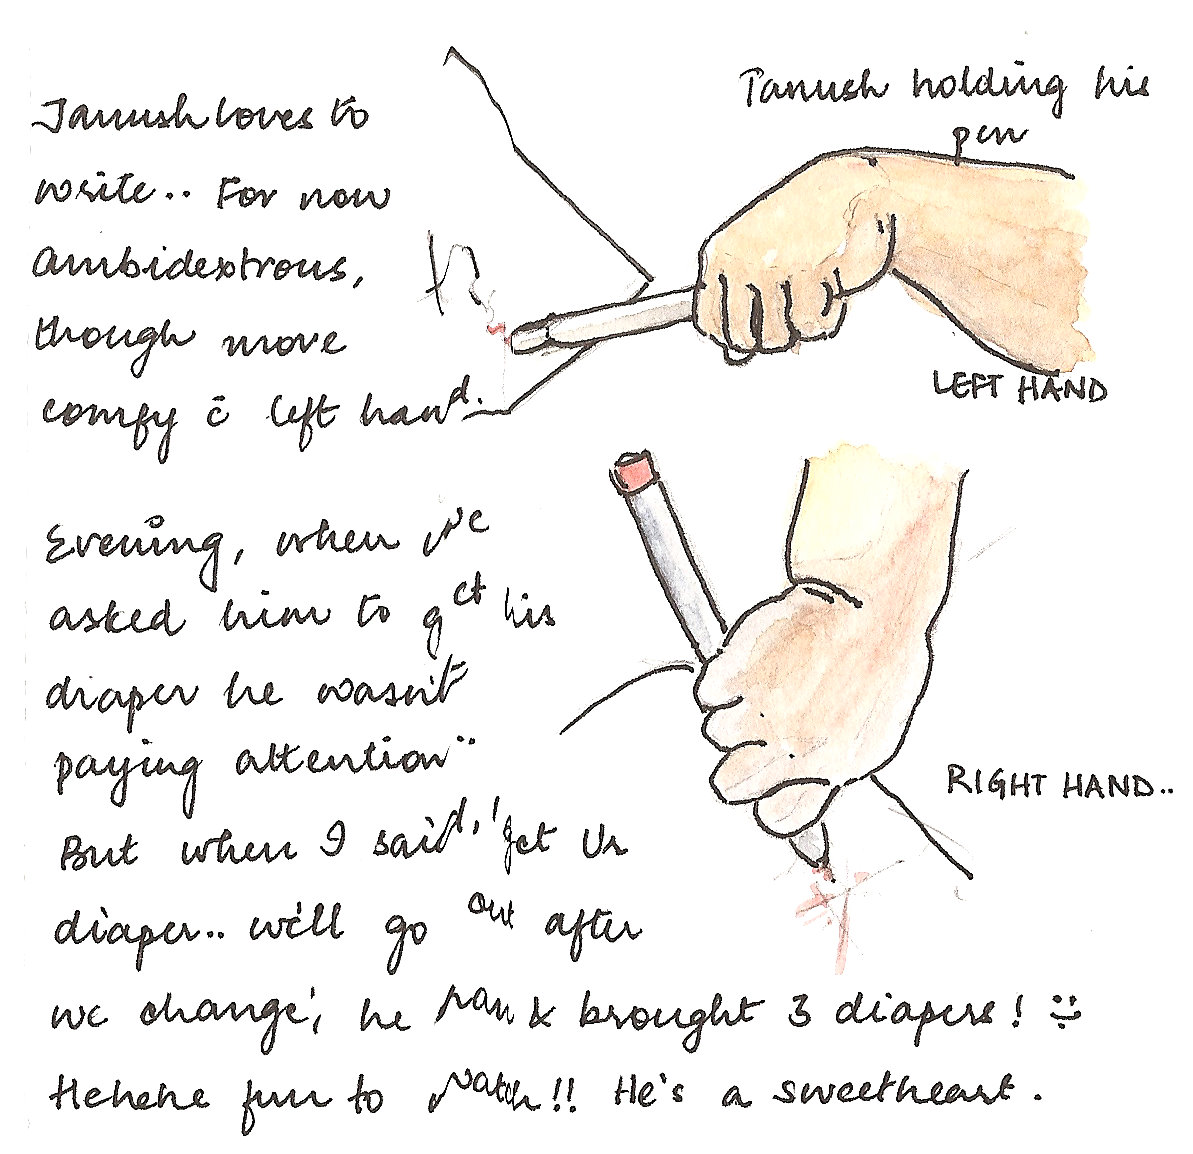 Tanush loves to
write.. For now
ambidextrous,
though more
comfy c̄ left hand.
Tanush holding his
pen
LEFT HAND
Evening, when we
asked him to get his
diaper he wasn't
paying attention..
But when I said, 'get Ur
diaper.. we'll go out after
we change', he ran & brought 3 diapers! :)
Hehehe fun to watch!! He's a sweetheart.
RIGHT HAND..